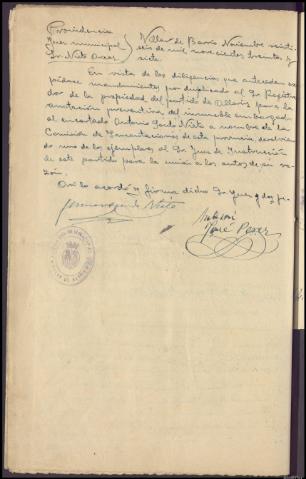 Providencia
Juez municipal
Sr. Nieto Pérez
Villar de Barrio Noviembre veinti-
seis de mil novecientos treinta y
siete.
En vista de las diligencias que anteceden ex-
pídase mandamiento por duplicado al Sr. Registra-
dor de la propiedad del partido de Allariz para la
anotación preventiva del inmueble embargado
al encartado Antonio Nieto a nombre de la
Comisión de Incautaciones de esta provincia, devolvien-
do uno de los ejemplares al Sr. Juez de Instrucción
de este partido para la unión a los autos de su ra-
zón.
Así lo acordó y firma dicho Sr. Juez y doy fe.
Nieto
Ante mí
José Pérez